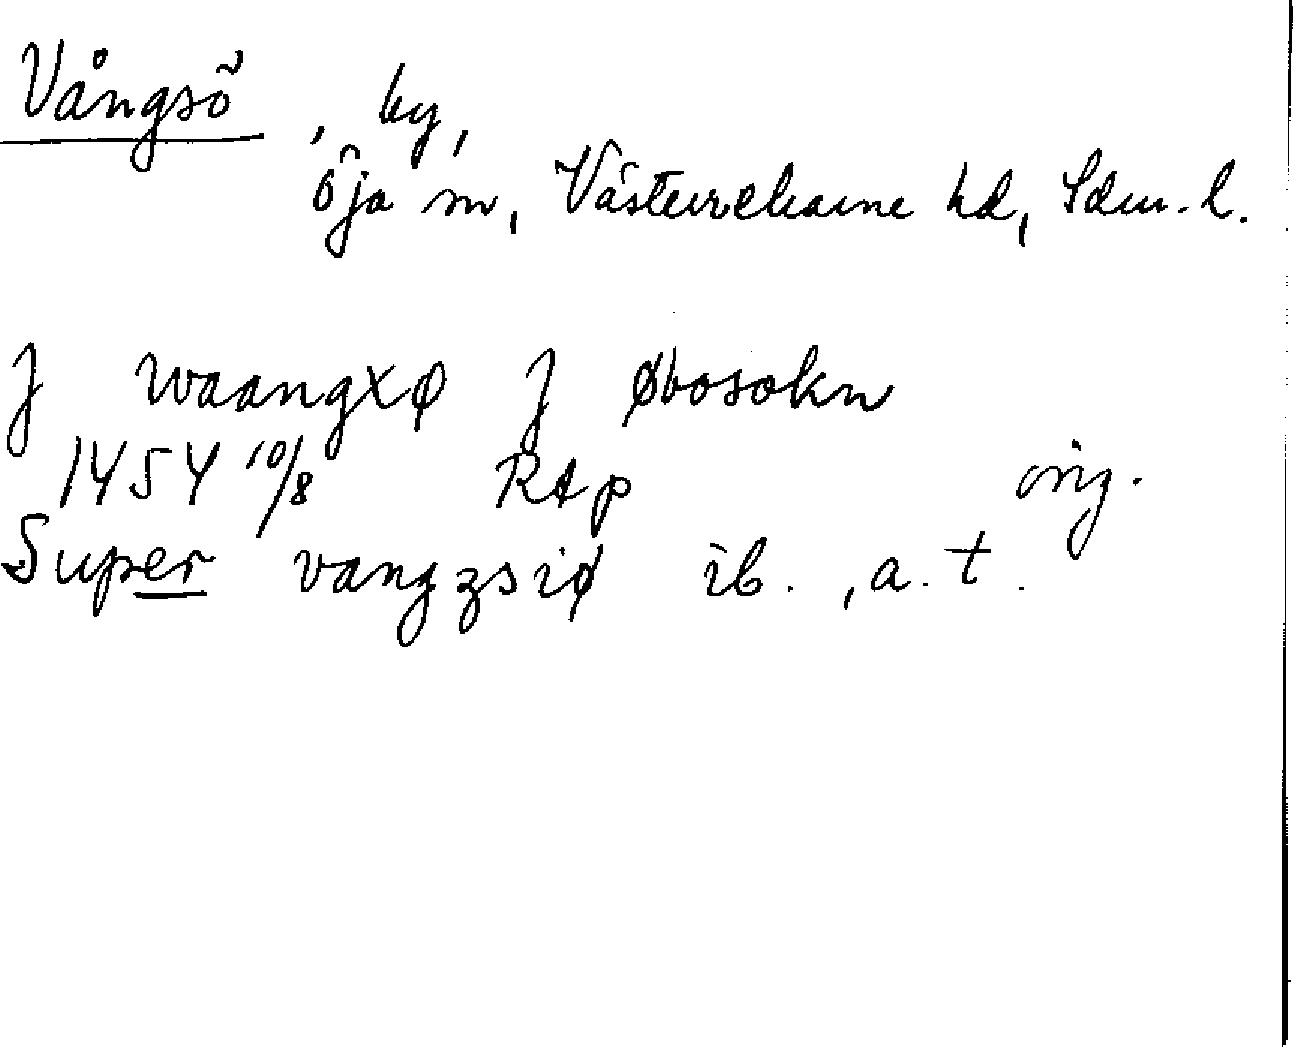 Vångsö, by,
Öja sn, Västerrekarne hd, Sdm. l.
J waangxø J øbosokn
1454 10/8 RAp orig.
Super vangzsiø ib., a. t.